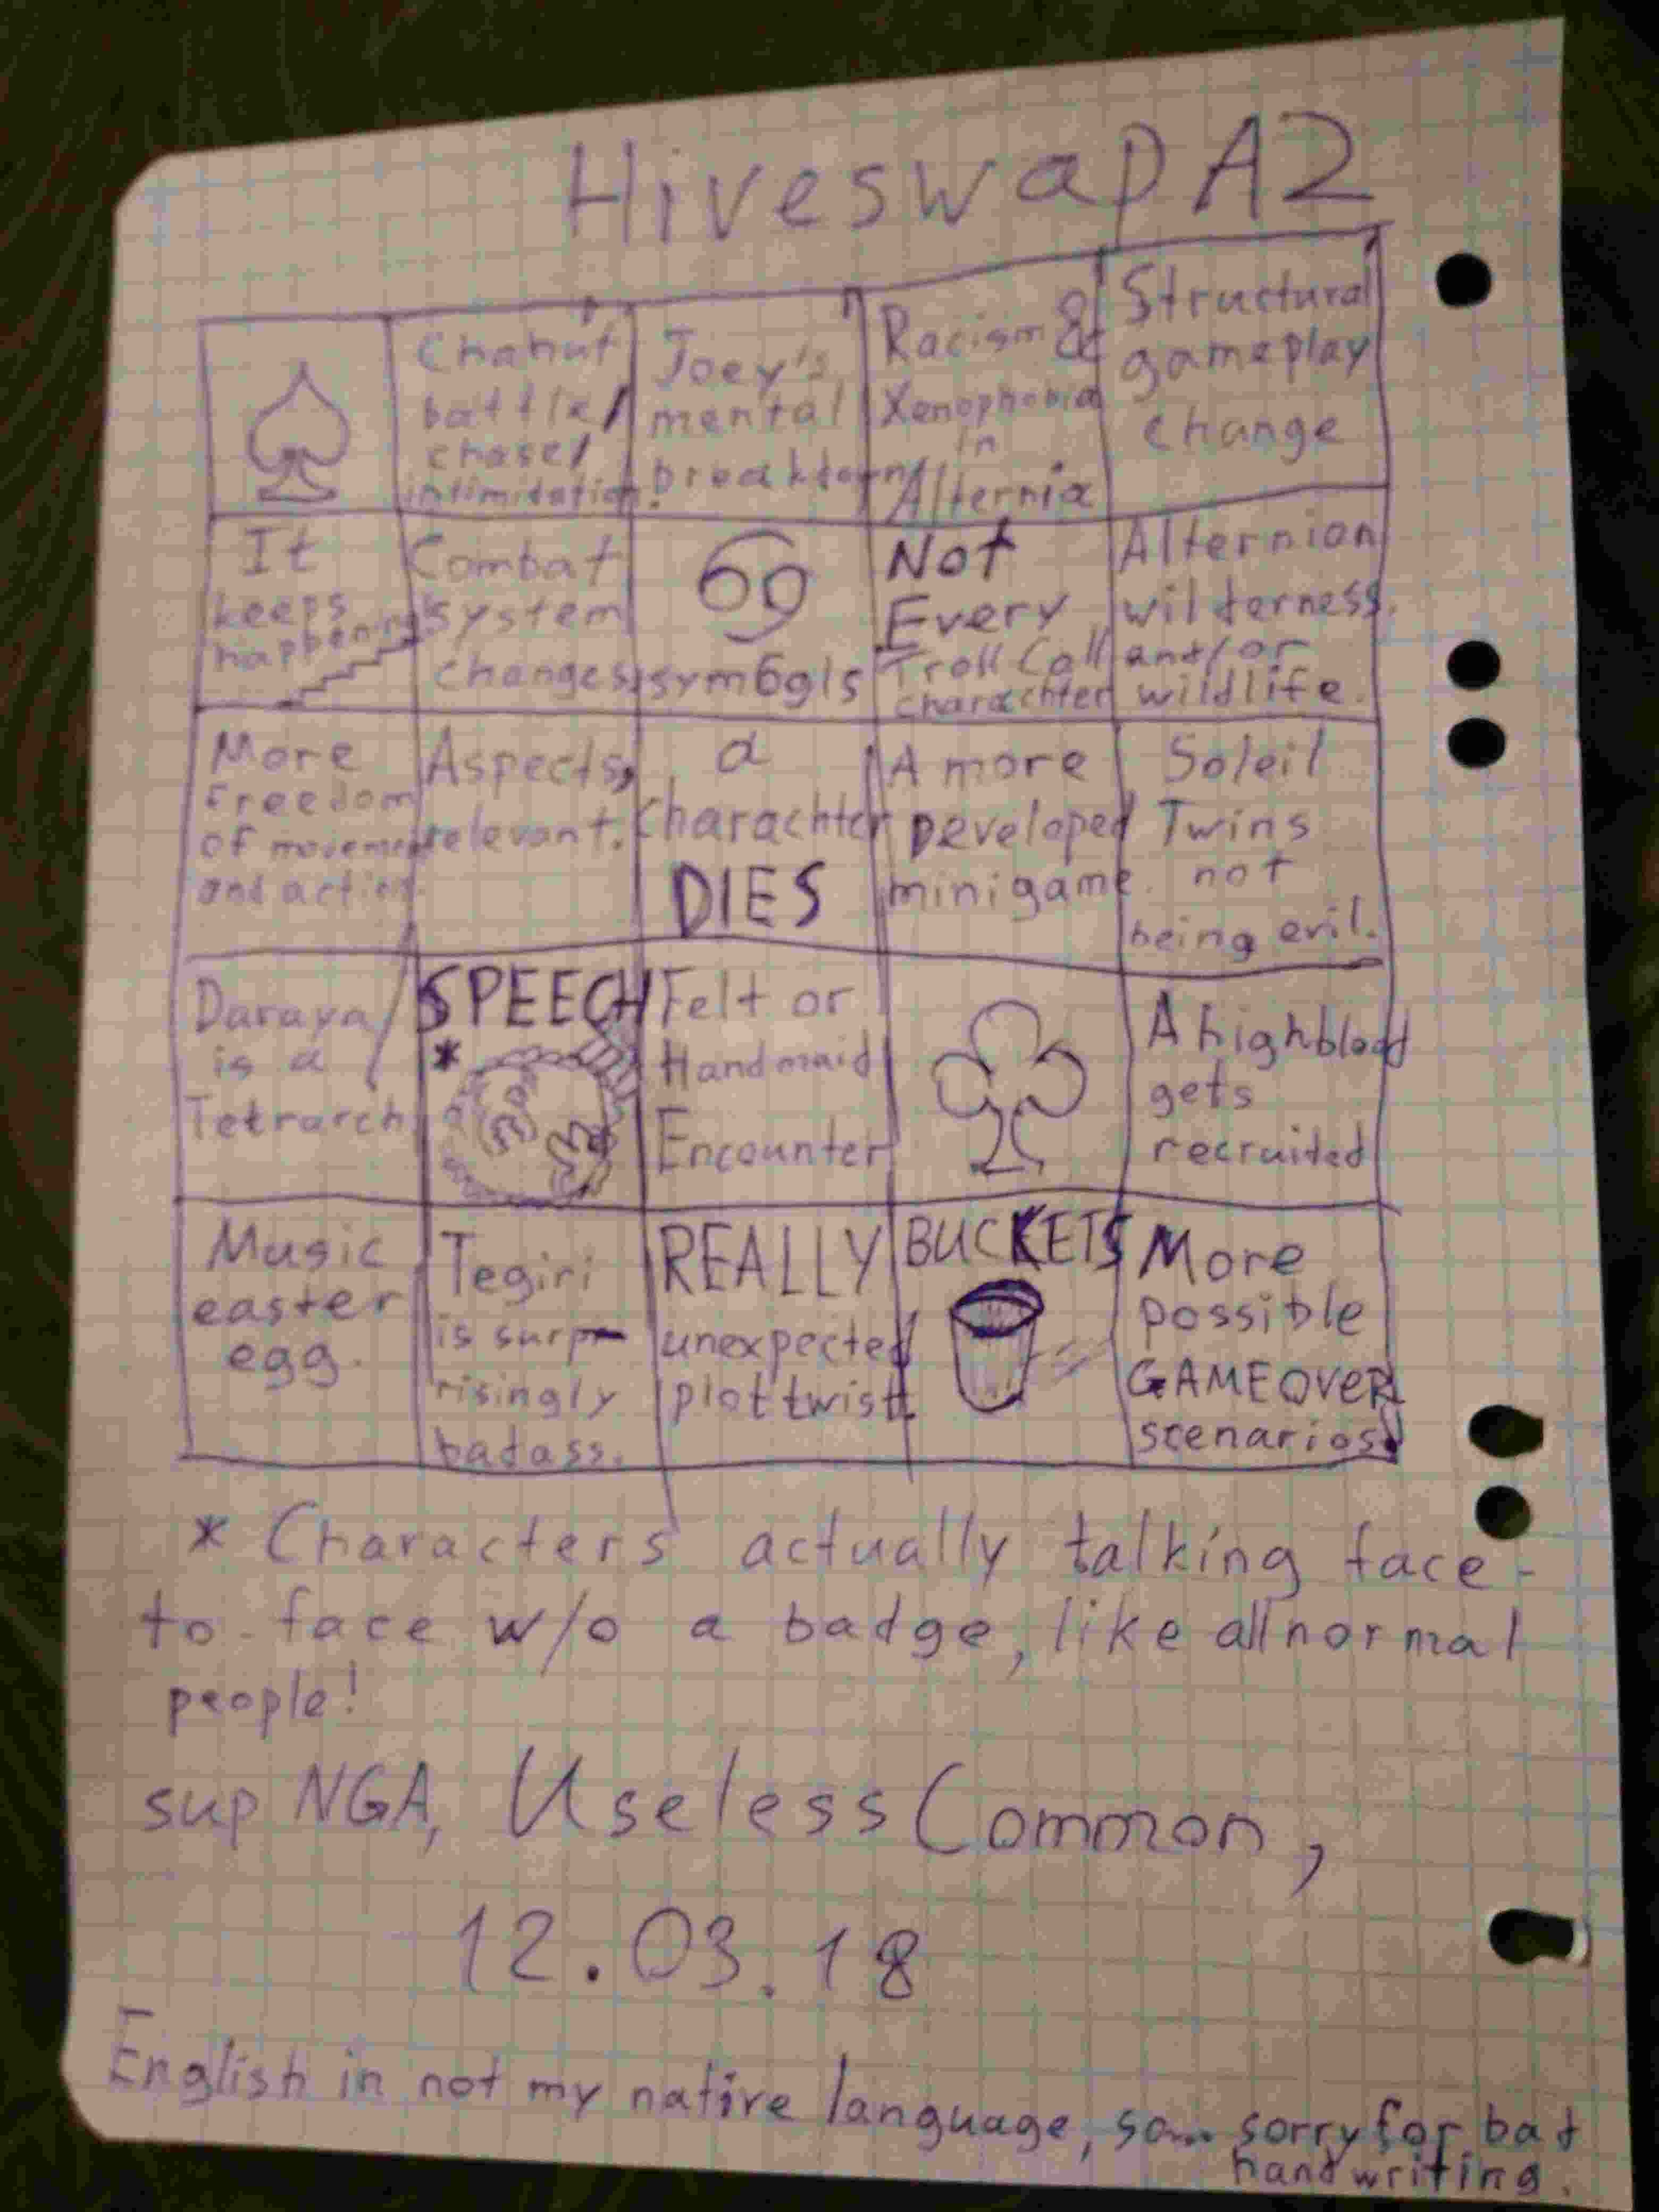 Hiveswap A2
Chahut
battle/
chase/
intimidation.
Joey's
mental
breakdown
Racism &
Xenophobia
in
Alternia
Structural
gameplay
change
It
keeps
happening
Combat
system
changes
69
sym6gls
Not
Every
Troll Call
charachter
Alternian
wilderness
and/or
wildlife.
More
Freedom
of movement
and action.
Aspects,
relevant.
a
charachter
DIES
A more
Developed
minigame.
Soleil
Twins
not
being evil.
Daraya
is a
Tetrarch
SPEECH
*
Felt or
Handmaid
Encounter
A highblood
gets
recruited
Music
easter
egg.
Tegiri
is surp-
risingly
badass.
REALLY
unexpected
plot twist.
BUCKETS
More
possible
GAMEOVER
scenarios.
* Characters actually talking face-
to-face w/o a badge, like all normal
people!
sup NGA, UselessCommon,
12.03.18
English in not my native language, so... sorry for bad
handwriting.